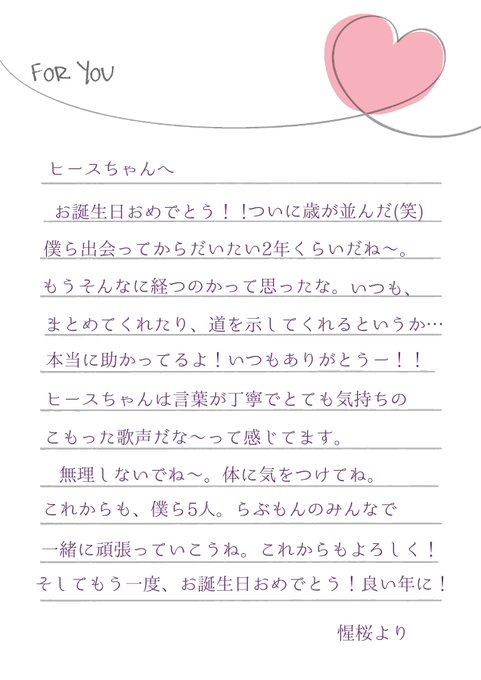 FOR YOU
ヒースちゃんへ
お誕生日おめでとう！！ついに歳が並んだ(笑)
僕ら出会ってからだいたい2年くらいだね〜。
もうそんなに経つのかって思ったな。いつも、
まとめてくれたり、道を示してくれるというか…
本当に助かってるよ！いつもありがとうー！！
ヒースちゃんは言葉が丁寧でとても気持ちの
こもった歌声だな〜って感じてます。
無理しないでね〜。体に気をつけてね。
これからも、僕ら5人。らぶもんのみんなで
一緒に頑張っていこうね。これからもよろしく！
そしてもう一度、お誕生日おめでとう！良い年に！
惺桜より